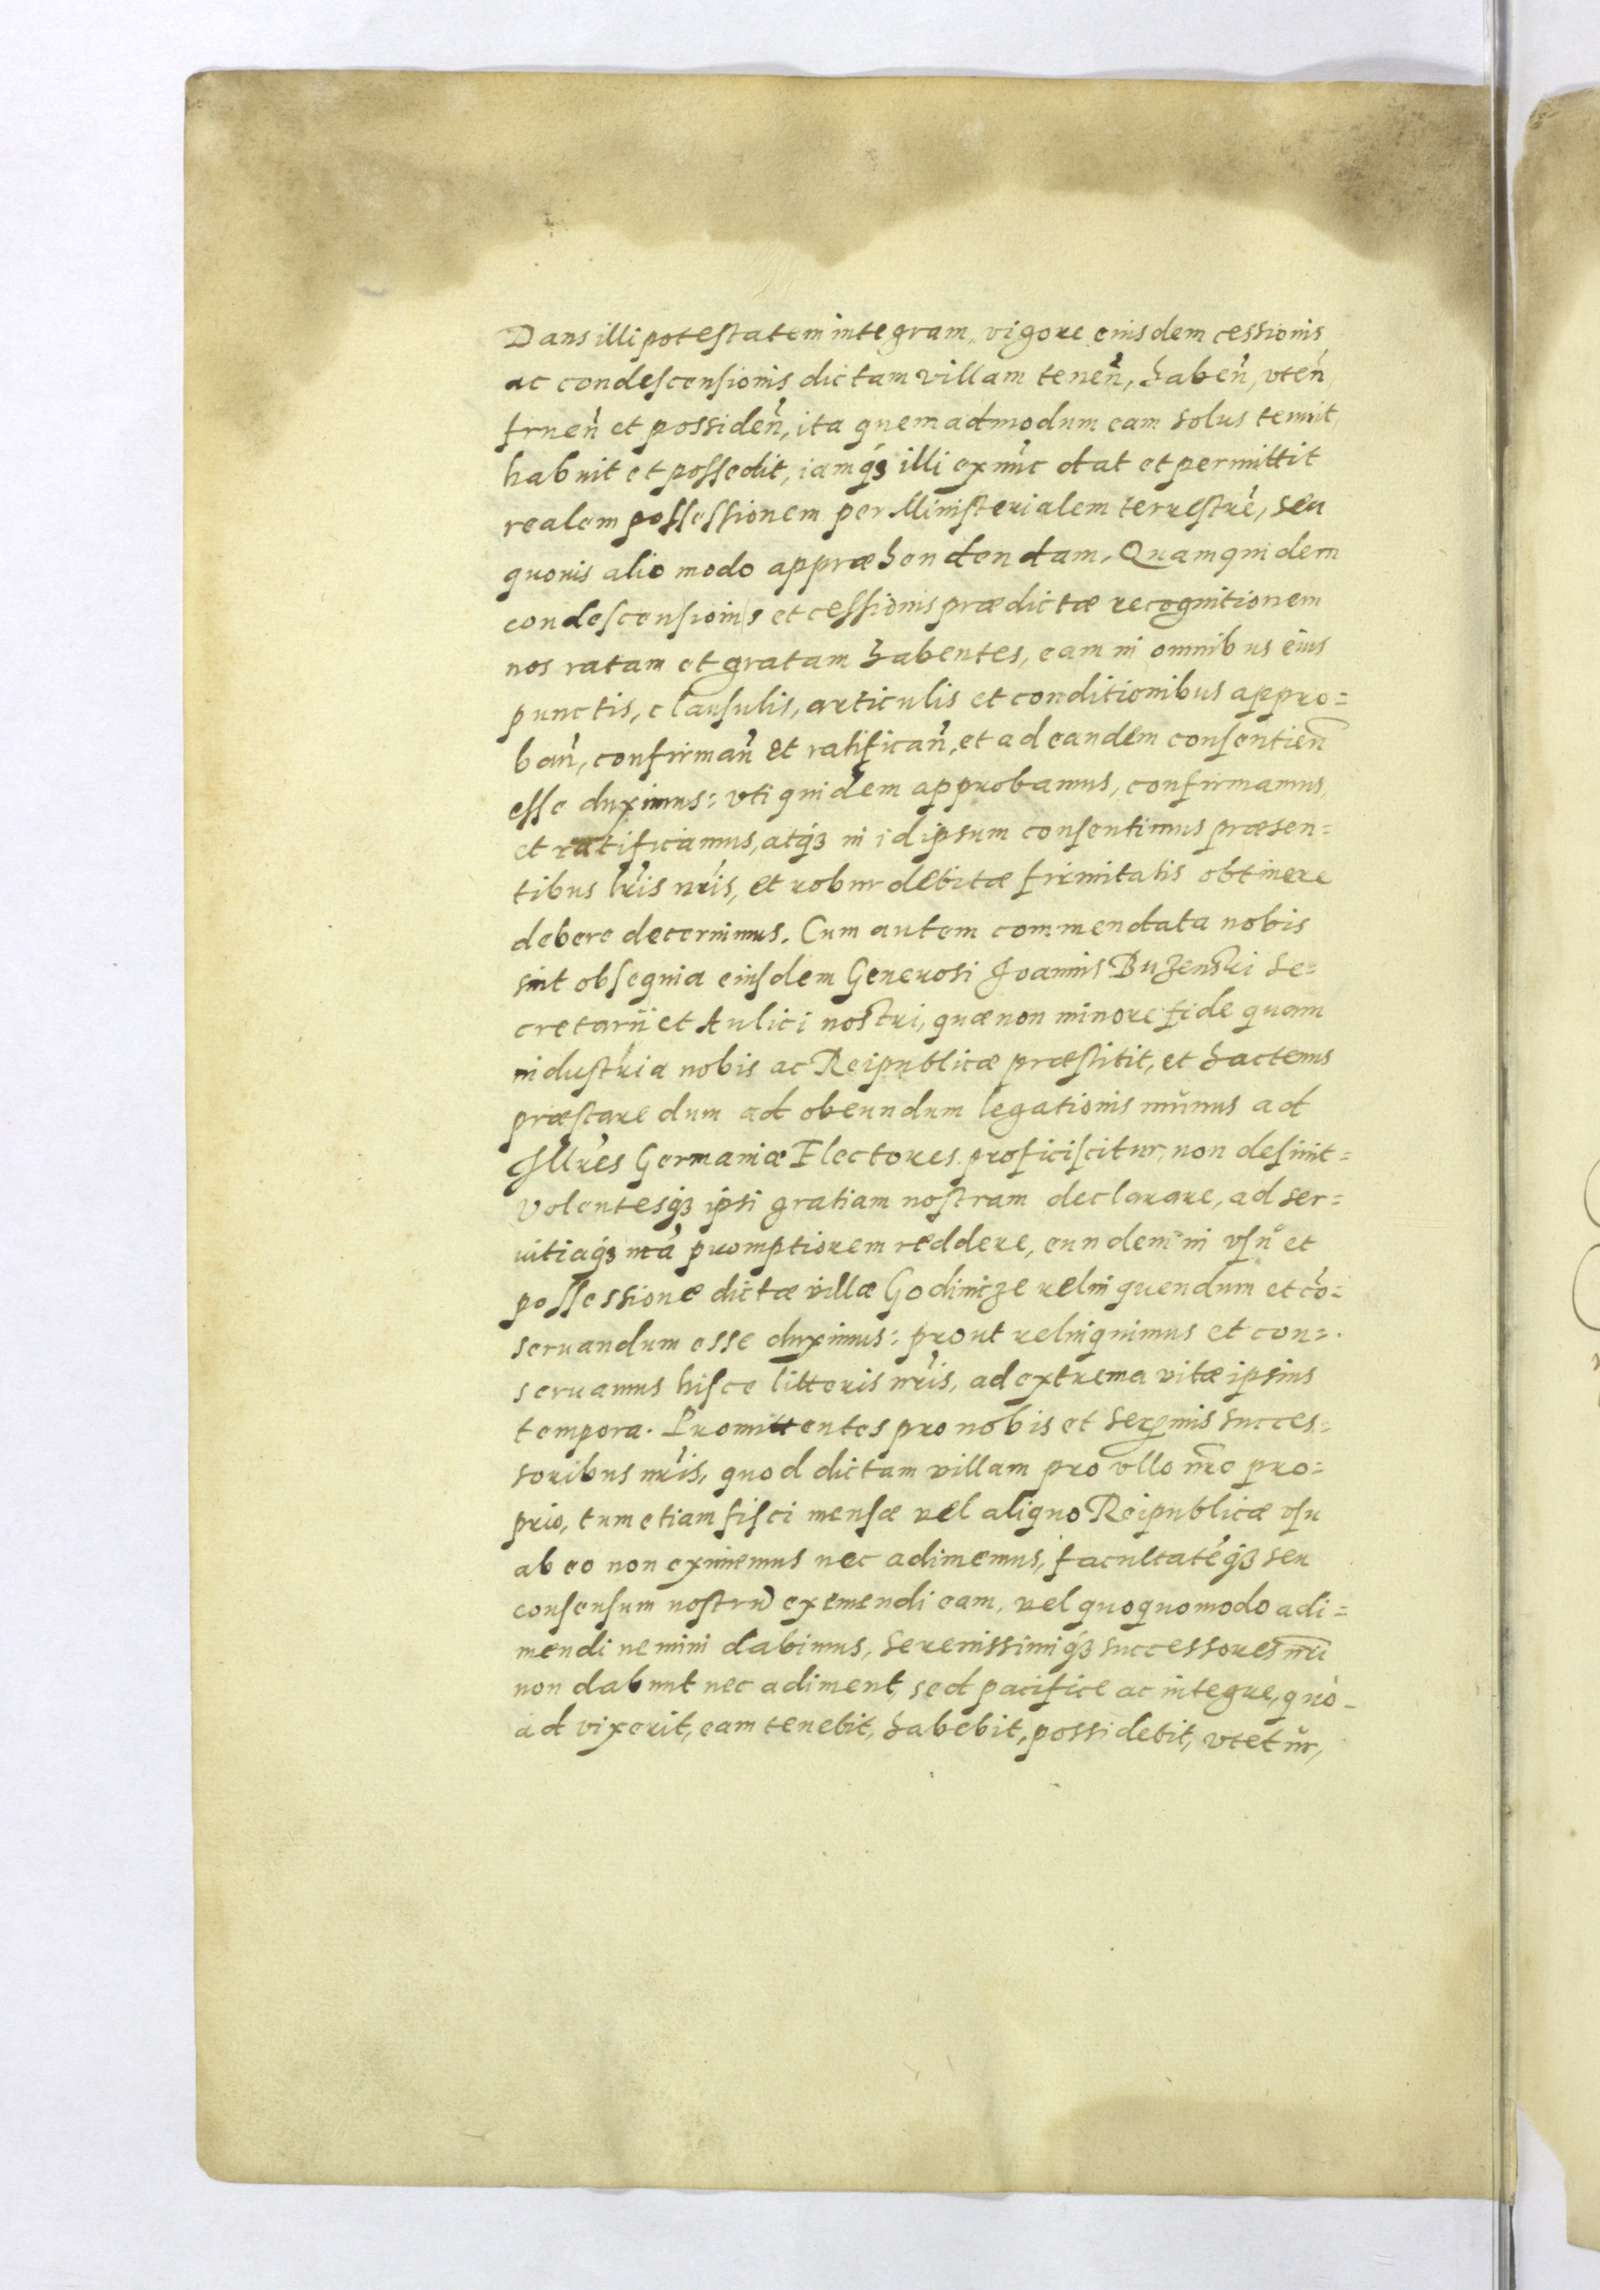 Dans illi potestatem integram, vigore eiusdem cessionis
ac condescensionis dictam villam teneñ, habeñ, vteñ,
frueñ et possideñ, ita quemadmodum eam solus tenuit,
habuit et possedit, iamqꝫ illi exnũc dat et permittit
realem possessionem per Ministerialem terrestrẽ, seu
quouis alio modo appræhendendam. Quamquidem
condescensionis et cessionis prædictæ recognitionem
nos ratam et gratam habentes, eam in omnibus eius
punctis, clausulis, articulis et conditionibus appro=
bañ, confirmañ et ratificañ, et ad eandem consentieñ
esse duximus: vti quidem approbamus, confirmamus,
et ratificamus, atqꝫ in id ipsum consentimus præsen=
tibus lr̃is nr̃is, et robur debitæ firmitatis obtinere
debere decernimus. Cum autem commendata nobis
sint obsequia eiusdem Generosi Joannis Buzenski Se=
cretarii et Aulici nostri, quæ non minore fide quam
industria nobis ac Reipublicæ præstitit, et hactenus
præstare dum ad obeundum legationis munus ad
Illr̃es Germaniæ Electores proficiscitur, non desinit=
Volentesqꝫ ipsi gratiam nostram declarare, ad ser=
uitiaqꝫ nr̃a promptiorem reddere, eundem in vsu et
possessione dictæ villæ Godinicze relinquendum et cõ=
seruandum esse duximus: prout relinquimus et con=
seruamus hisce litteris nr̃is, ad extrema vitæ ipsius
tempora. Promittentes pro nobis et Serẽmis succes=
soribus nr̃is, quod dictam villam pro vllo nr̃o pro=
prio, tum etiam fisci mensæ vel aliquo Reipublicæ vsu
ab eo non eximemus nec adimemus, facultatẽqꝫ seu
consensum nostrũ exemendi eam, vel quoquomodo adi=
mendi nemini dabimus, Serenissimiqꝫ successores nr̃i
non dabunt nec adiment, sed pacifice ac integre, quo-
ad vixerit, eam tenebit, habebit, possidebit, vtetur,